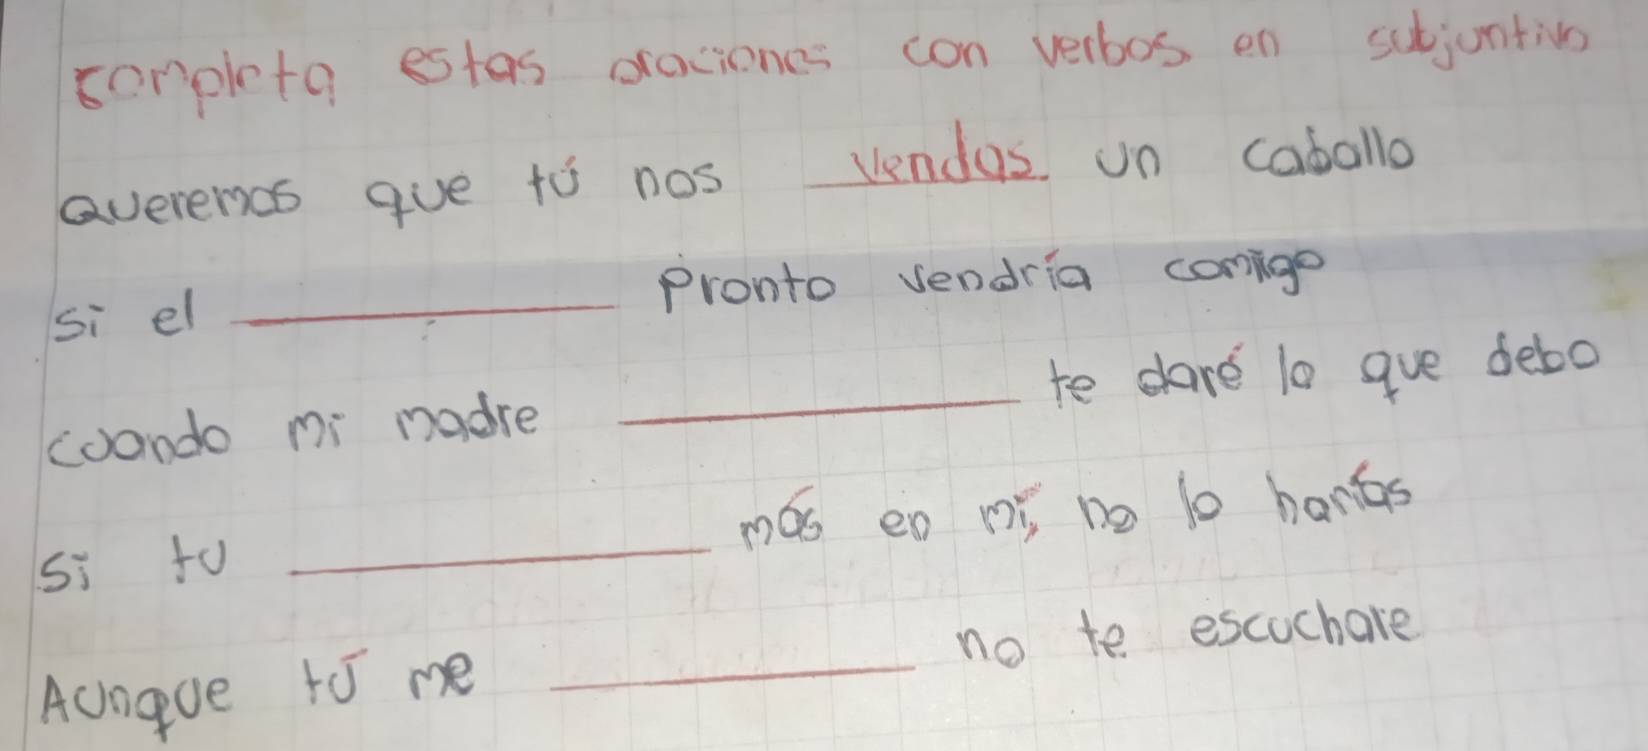 completa estas oraciones con verbos en subjuntivo
Queremos que tú nos vendas un caballo
si el ________ pronto vendría comigo
cuando mi madre ________ te daré lo que debo
si tu ________ más en mí, no lo harías
Aunque tú me ________ no te escuchare